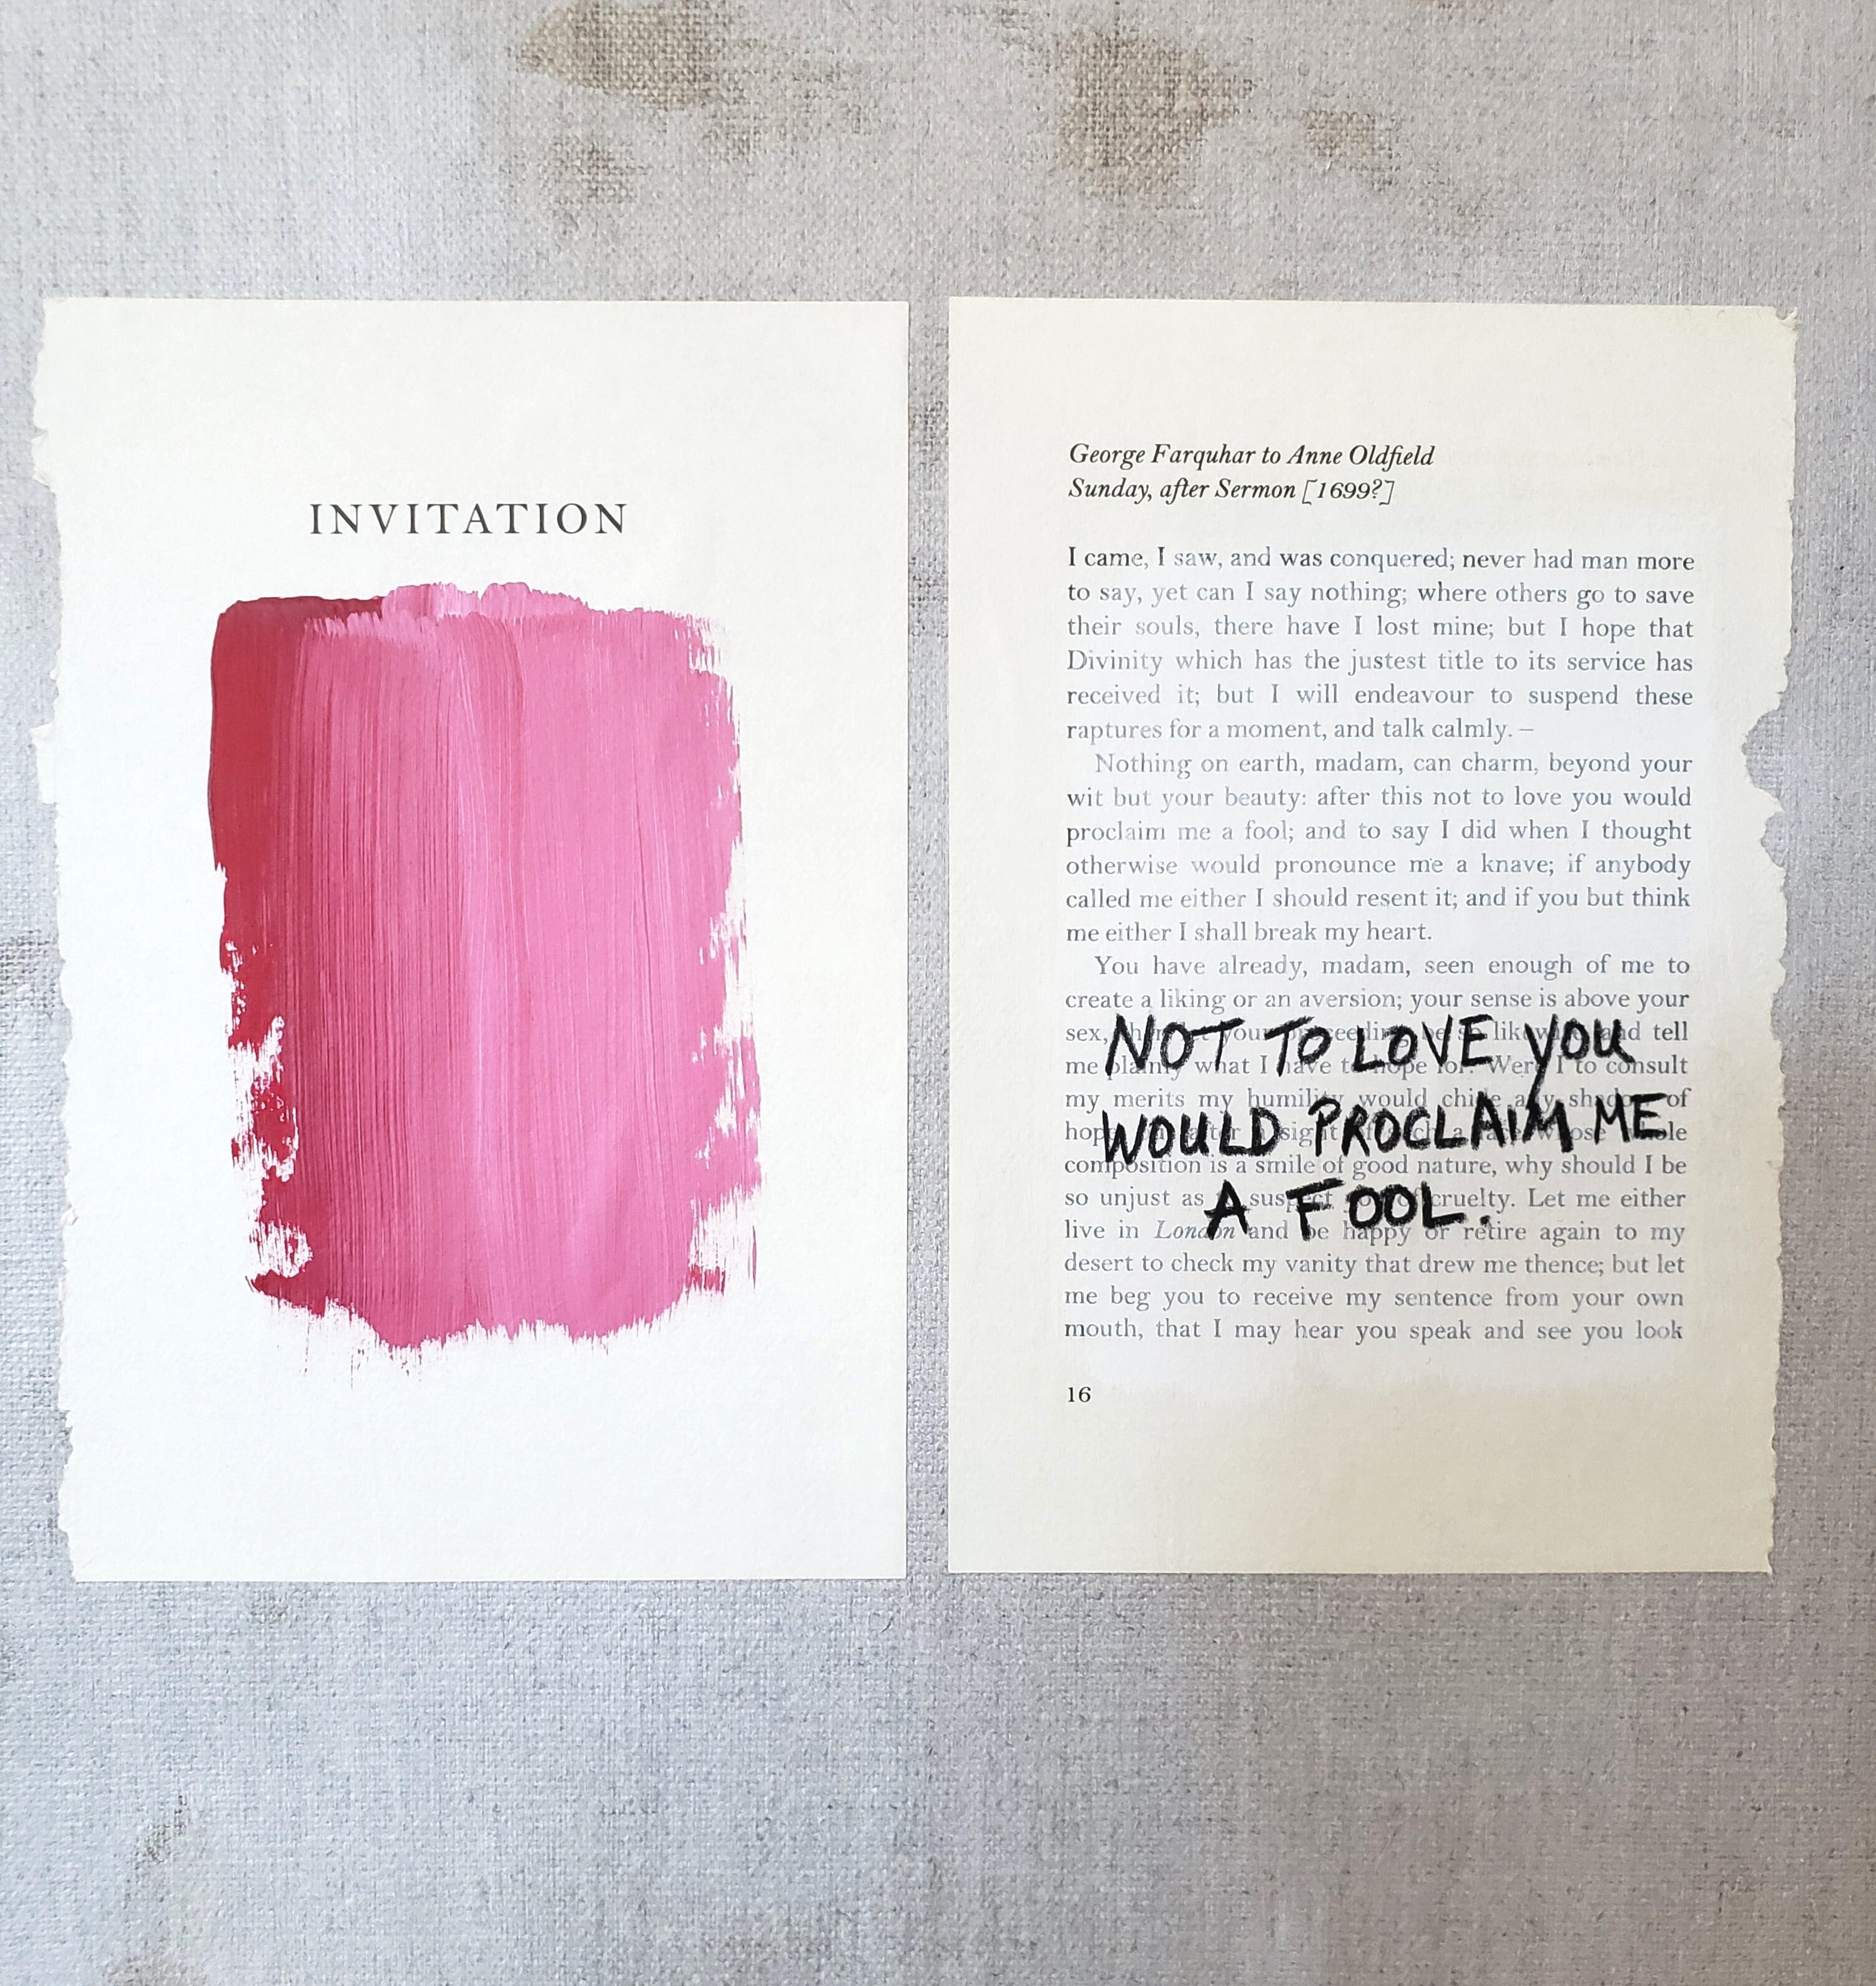 INVITATION
George Farquhar to Anne Oldfield
Sunday, after Sermon [1699?]
I came, I saw, and was conquered; never had man more
to say, yet can I say nothing; where others go to save
their souls, there have I lost mine; but I hope that
Divinity which has the justest title to its service has
received it; but I will endeavour to suspend these
raptures for a moment, and talk calmly. –
Nothing on earth, madam, can charm, beyond your
wit but your beauty: after this not to love you would
proclaim me a fool; and to say I did when I thought
otherwise would pronounce me a knave; if anybody
called me either I should resent it; and if you but think
me either I shall break my heart.
You have already, madam, seen enough of me to
create a liking or an aversion; your sense is above your
sex, your proceeding be so likewise and tell
NOT TO LOVE YOU
me plainly what I have to hope for. Were I to consult
my merits my humility would chide any shadow of
WOULD PROCLAIM ME
hope after a sight a whose whole
composition is a smile of good nature, why should I be
so unjust as suspect you of cruelty. Let me either
A FOOL.
live in London and be happy or retire again to my
desert to check my vanity that drew me thence; but let
me beg you to receive my sentence from your own
mouth, that I may hear you speak and see you look
16